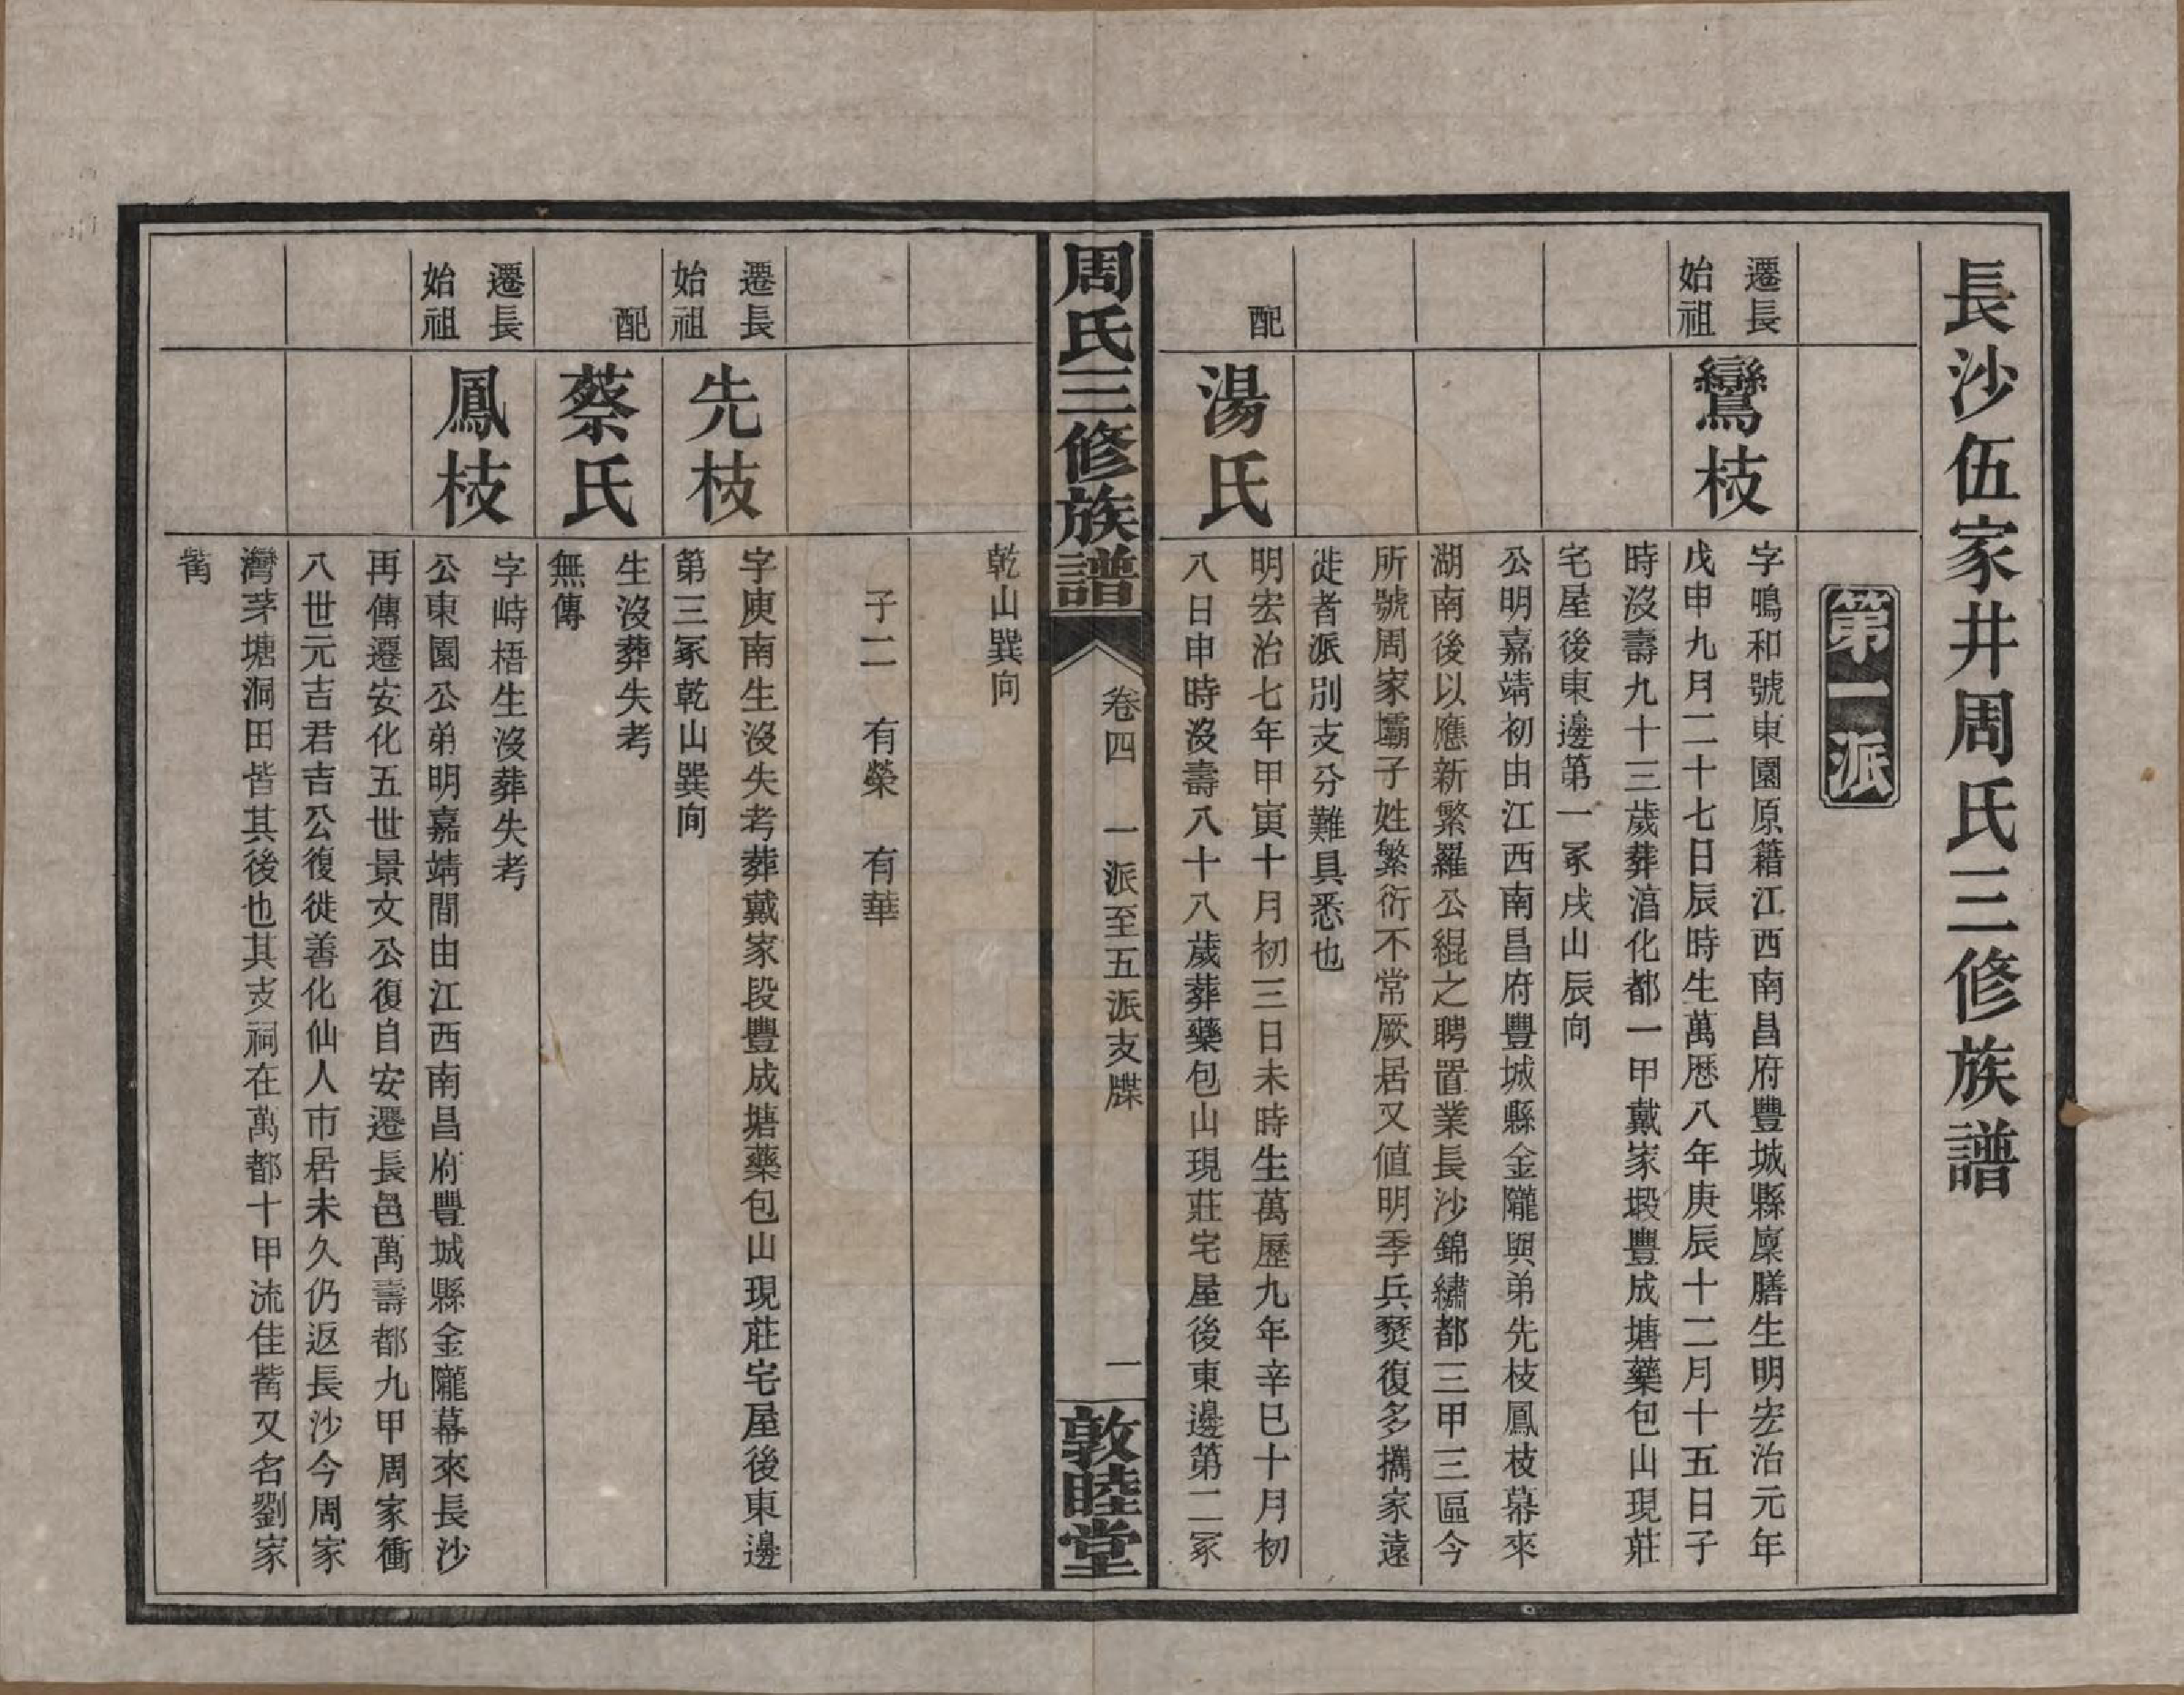 長沙伍家井周氏三修族譜
第一派
遷長
始祖
鸞枝
字鳴和號東園原籍江西南昌府豐城縣廩膳生明宏治元年
戊申九月二十七日辰時生萬厯八年庚辰十二月十五日子
時沒壽九十三歲葬淐化都一甲戴家塅豐成塘藥包山現莊
宅屋後東邊第一冢戌山辰向
公明嘉靖初由江西南昌府豐城縣金隴與弟先枝鳳枝幕來
湖南後以應新繁羅公緄之聘置業長沙錦繡都三甲三區今
所號周家壩子姓繁衍不常厥居又値明季兵燹復多攜家遠
徙者派別支分難具悉也
配
湯氏
明宏治七年甲寅十月初三日未時生萬歷九年辛巳十月初
八日申時沒壽八十八歲葬藥包山現莊宅屋後東邊第二冢
周氏三修族譜
卷四 一派至五派支牒
一
敦睦堂
乾山巽向
子二 有榮 有華
遷長
始祖
先枝
字庾南生沒失考葬戴家段豐成塘藥包山現莊宅屋後東邊
第三冢乾山巽向
配
蔡氏
生沒葬失考
無傳
遷長
始祖
鳳枝
字峙梧生沒葬失考
公東園公弟明嘉靖間由江西南昌府豐城縣金隴幕來長沙
再傳遷安化五世景文公復自安遷長邑萬壽都九甲周家衝
八世元吉君吉公復徙善化仙人市居未久仍返長沙今周家
灣茅塘洞田皆其後也其支祠在萬都十甲流佳觜又名劉家
觜